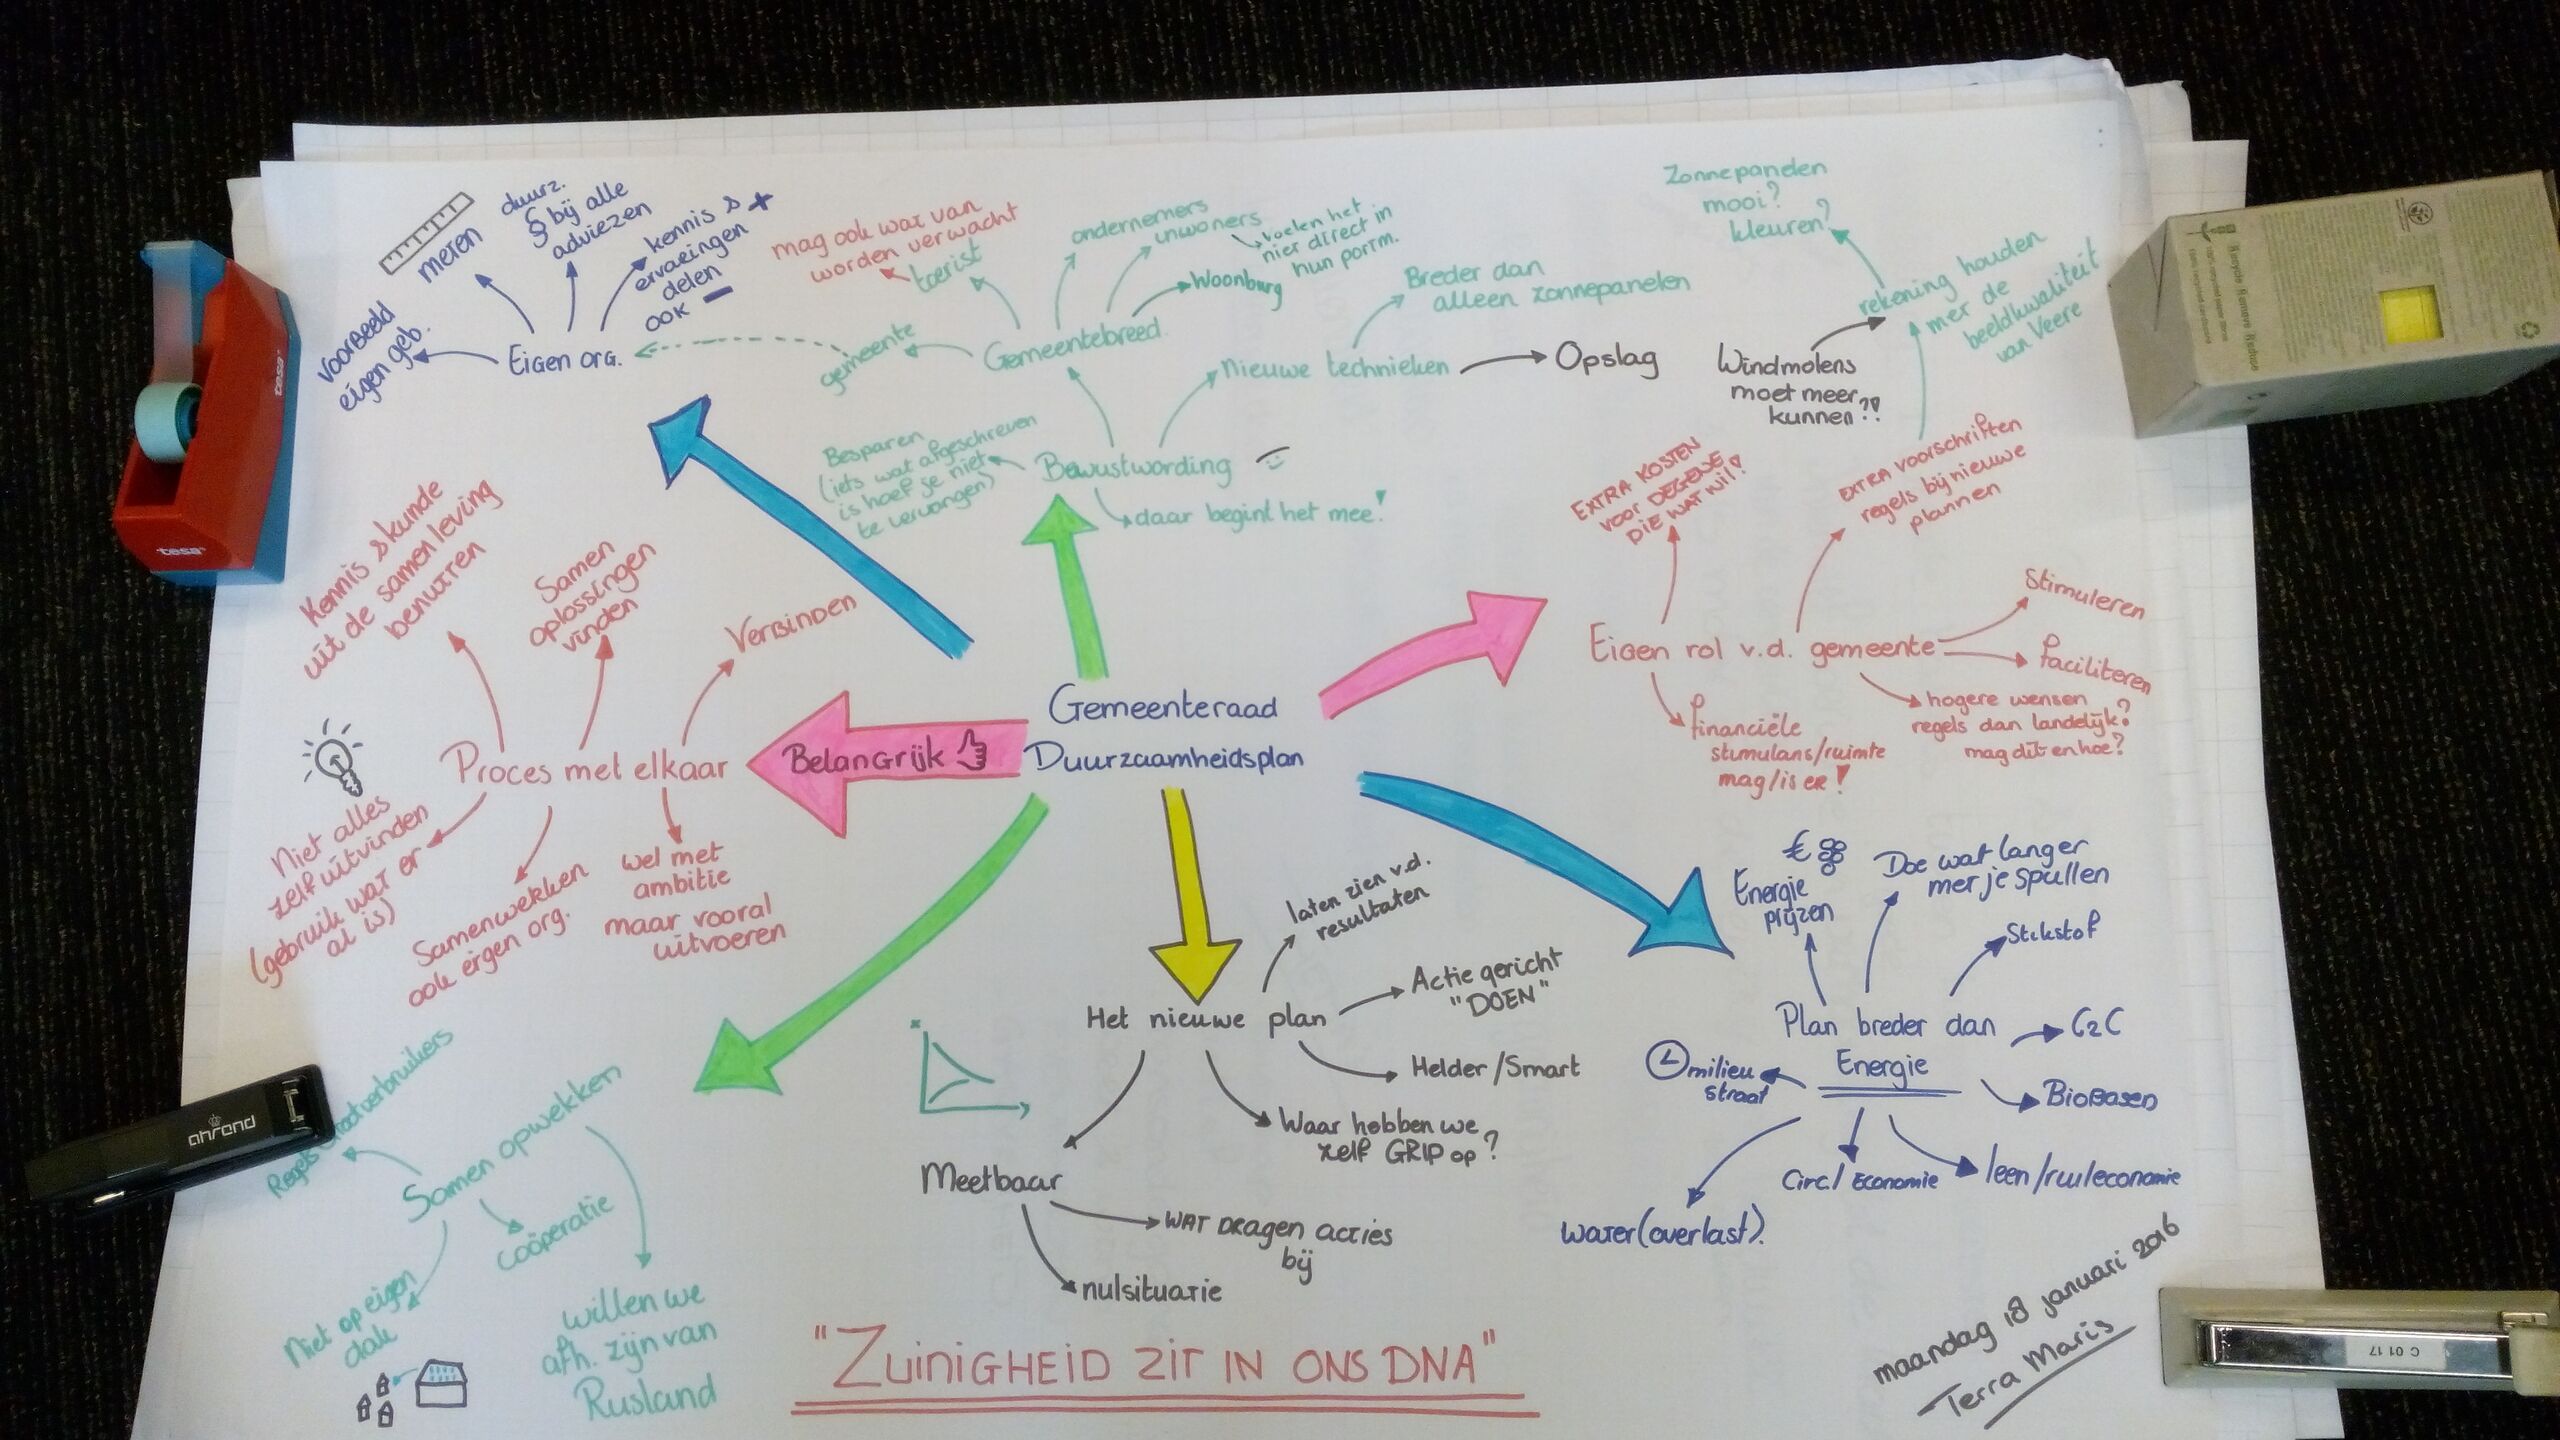 Gemeenteraad
Duurzaamheidsplan
Eigen org.
voorbeeld
eigen geb.
meten
duurz.
§ bij alle
adviezen
kennis &
ervaringen
delen
ook −
+
Bewustwording
Besparen
(iets wat afgeschreven
is hoef je niet
te vervangen)
daar begint het mee!
Gemeentebreed
gemeente
toerist
mag ook wat van
worden verwacht
ondernemers
inwoners
voelen het
hier direct in
hun portm.
Woonburg
Nieuwe technieken
Breder dan
alleen zonnepanelen
Opslag
Eigen rol v.d. gemeente
EXTRA KOSTEN
voor DEGENE
DIE WAT WIL!
EXTRA voorschriften
regels bij nieuwe
plannen
rekening houden
met de
beeldkwaliteit
van Veere
Zonnepanelen
mooi?
kleuren?
Windmolens
moet meer
kunnen?!
Stimuleren
faciliteren
hogere wensen
regels dan landelijk?
mag dit en hoe?
financiële
stimulans/ruimte
mag/is er!
Plan breder dan
Energie
€
Energie
prijzen
Doe wat langer
met je spullen
Stikstof
C2C
BioBased
leen/ruileconomie
Circ./Economie
water(overlast).
milieu
straat
Het nieuwe plan
laten zien v.d.
resultaten
Actie gericht
"DOEN"
Helder/Smart
Waar hebben we
zelf GRIP op?
Meetbaar
WAT DRAGEN acties
bij
nulsituatie
Samen opwekken
Regels
Coöperatie
willen we
afh. zijn van
Rusland
Niet op eigen
dak
Belangrijk
Proces met elkaar
Kennis & kunde
uit de samenleving
benutten
Samen
oplossingen
vinden
Verbinden
Niet alles
zelf uitvinden
(gebruik wat er
al is)
Samenwekken
ook eigen org.
wel met
ambitie
maar vooral
uitvoeren
"ZUINIGHEID ZIT IN ONS DNA"
maandag 18 januari 2016
Terra Maris
tesa
tesa
ahrend
Recycle & Remove & Notes
C 01 17